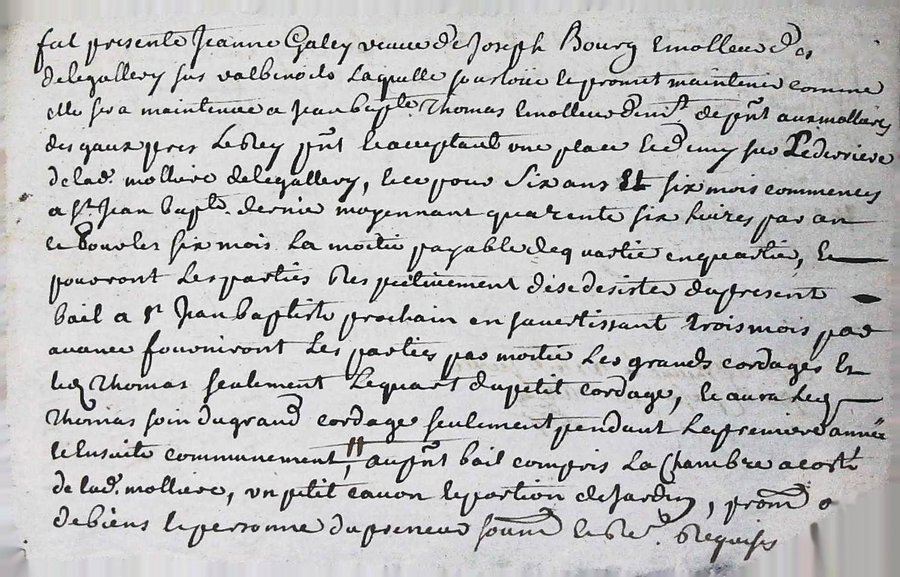 fut presente Jeanne Galey veuve de Joseph Bourg Emolleur d
de legallery sus valbenoite laquelle sousloüe et promet maintenir comme
elle sera maintenue a Jean baple. Thomas Emolleur dem.t depnt aux mollieres
des gaux pres Lebley pnt et acceptant une place et demy sur Lederriere
de lad. molliere de legallery, et ce pour Six ans Et six mois commencés
a St. Jean baple. dernier moyennant quarente six livres par an
et pour les six mois la moitie payable de quartie en quartie, Et
pourront Les parties Respectivement dese desister du present
bail a St Jean baptiste prochain en savertissant trois mois par
avance fourniront Les parties par moitie Les grands cordages Et
led Thomas seulement Le quart du petit cordage, et aura led
Thomas soin du grand cordage seulement pendant La premiere année
et Ensuite communement, au pnt bail compris La Chambre a costé
de lad. molliere, un petit cavon et portion de Jardin, prom o
de biens et personne du preneur soum et Re. Requises